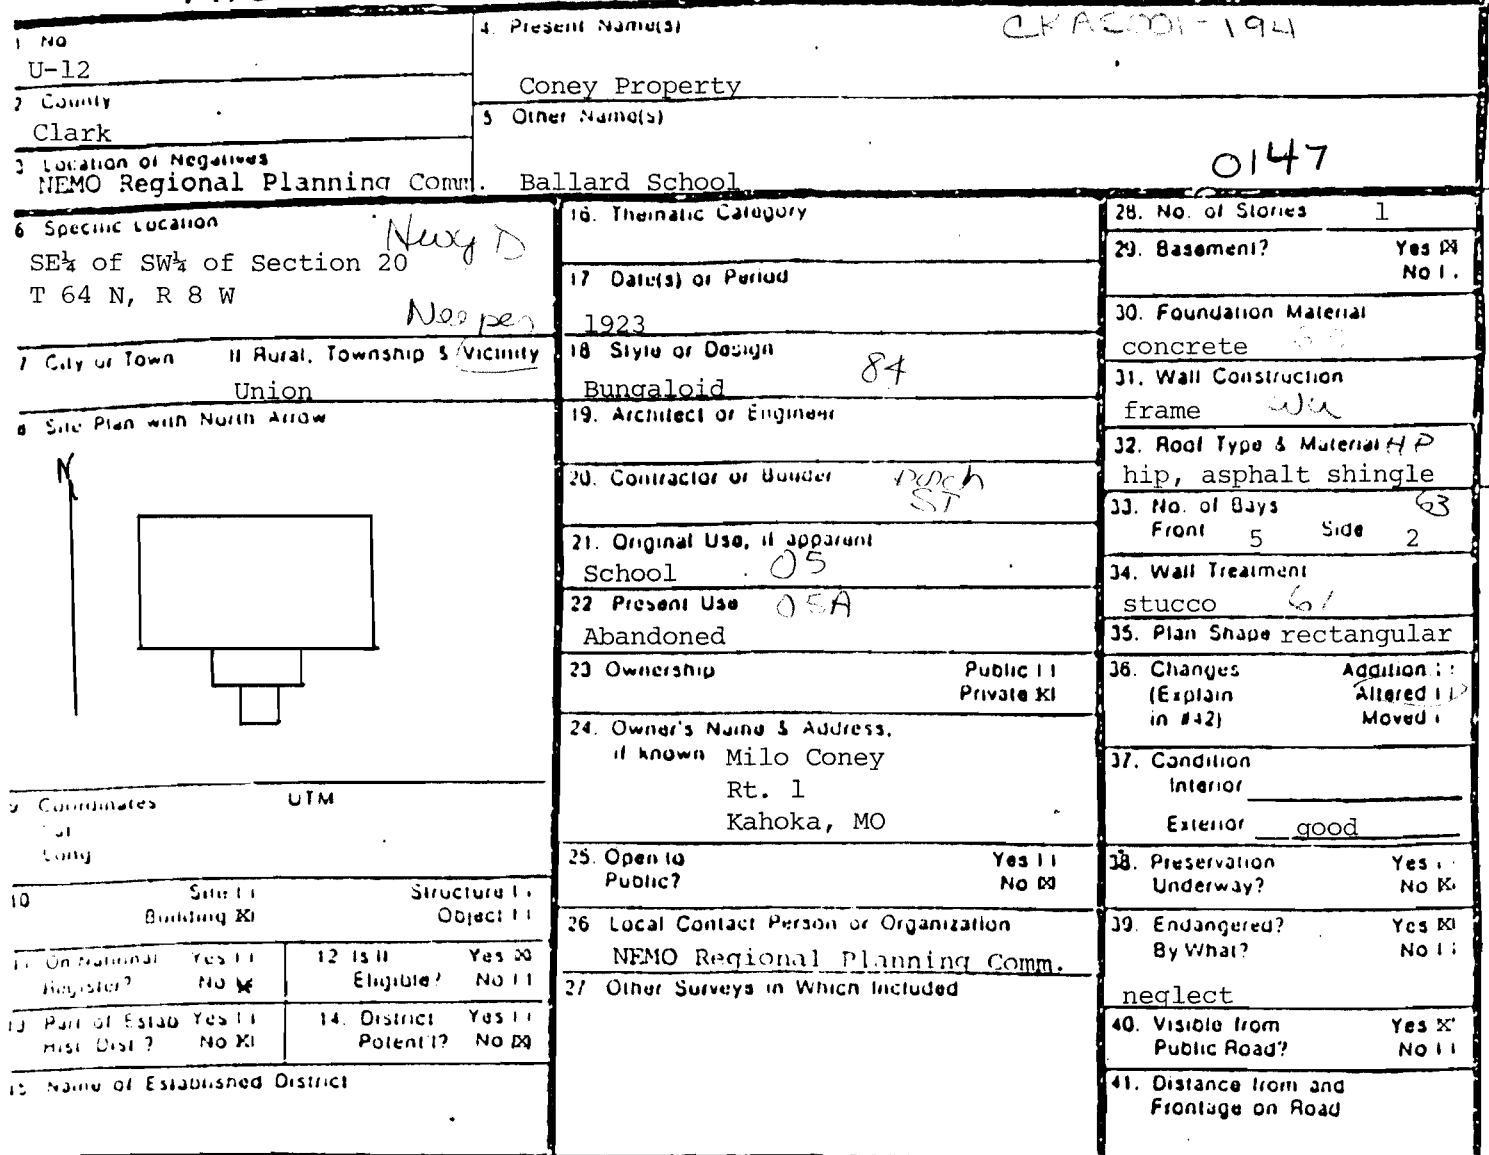 1 No
U-12
2 County
Clark
3 Location of Negatives
NEMO Regional Planning Comm.
4. Present Name(s)
CKAS001-194
Coney Property
5 Other Name(s)
0147
Ballard School
6 Specific Location
Hwy D
SE¼ of SW¼ of Section 20
T 64 N, R 8 W
Neeper
7 City or Town If Rural, Township & Vicinity
Union
8 Site Plan with North Arrow
N
9 Coordinates UTM
Lat
Long
10 Site Structure
Building X Object
11 On National Yes
Register? No X
12 Is It Yes X
Eligible? No
13 Part of Estab Yes
Hist. Dist.? No X
14. District Yes
Potent'l? No X
15 Name of Established District
16. Thematic Category
17 Date(s) or Period
1923
18 Style or Design
84
Bungaloid
19. Architect or Engineer
20. Contractor or Builder
porch
ST
21. Original Use, if apparent
School 05
22 Present Use 05A
Abandoned
23 Ownership Public
Private X
24. Owner's Name & Address,
if known Milo Coney
Rt. 1
Kahoka, MO
25. Open to Yes
Public? No X
26 Local Contact Person or Organization
NEMO Regional Planning Comm.
27 Other Surveys in Which Included
28. No. of Stories 1
29. Basement? Yes X
No
30. Foundation Material
concrete
31. Wall Construction
frame
32. Roof Type & Material HP
hip, asphalt shingle
33. No. of Bays 63
Front 5 Side 2
34. Wall Treatment
stucco 61
35. Plan Shape rectangular
36. Changes Addition
(Explain Altered
in #42) Moved
37. Condition
Interior
Exterior good
38. Preservation Yes
Underway? No X
39. Endangered? Yes X
By What? No
neglect
40. Visible from Yes X
Public Road? No
41. Distance from and
Frontage on Road